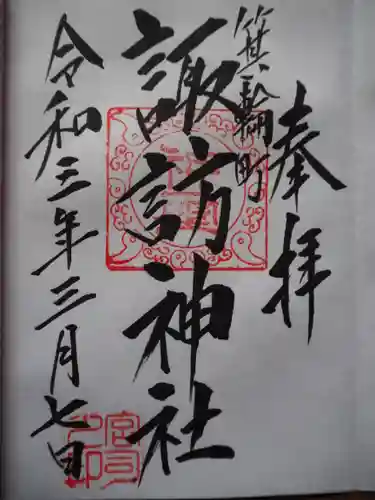 奉拝
箕輪町
諏訪神社
令和三年三月七日
宮司之印